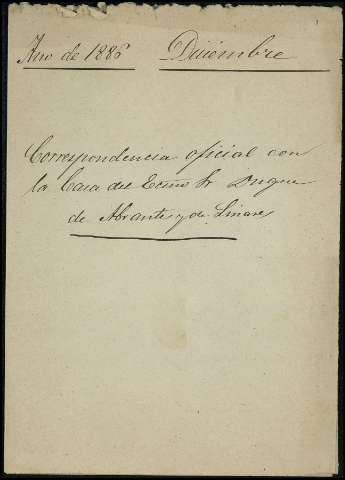 Año de 1886 Diciembre
Correspondencia oficial con
la Casa del Exmo Sr Duque
de Abrantes y de Linares